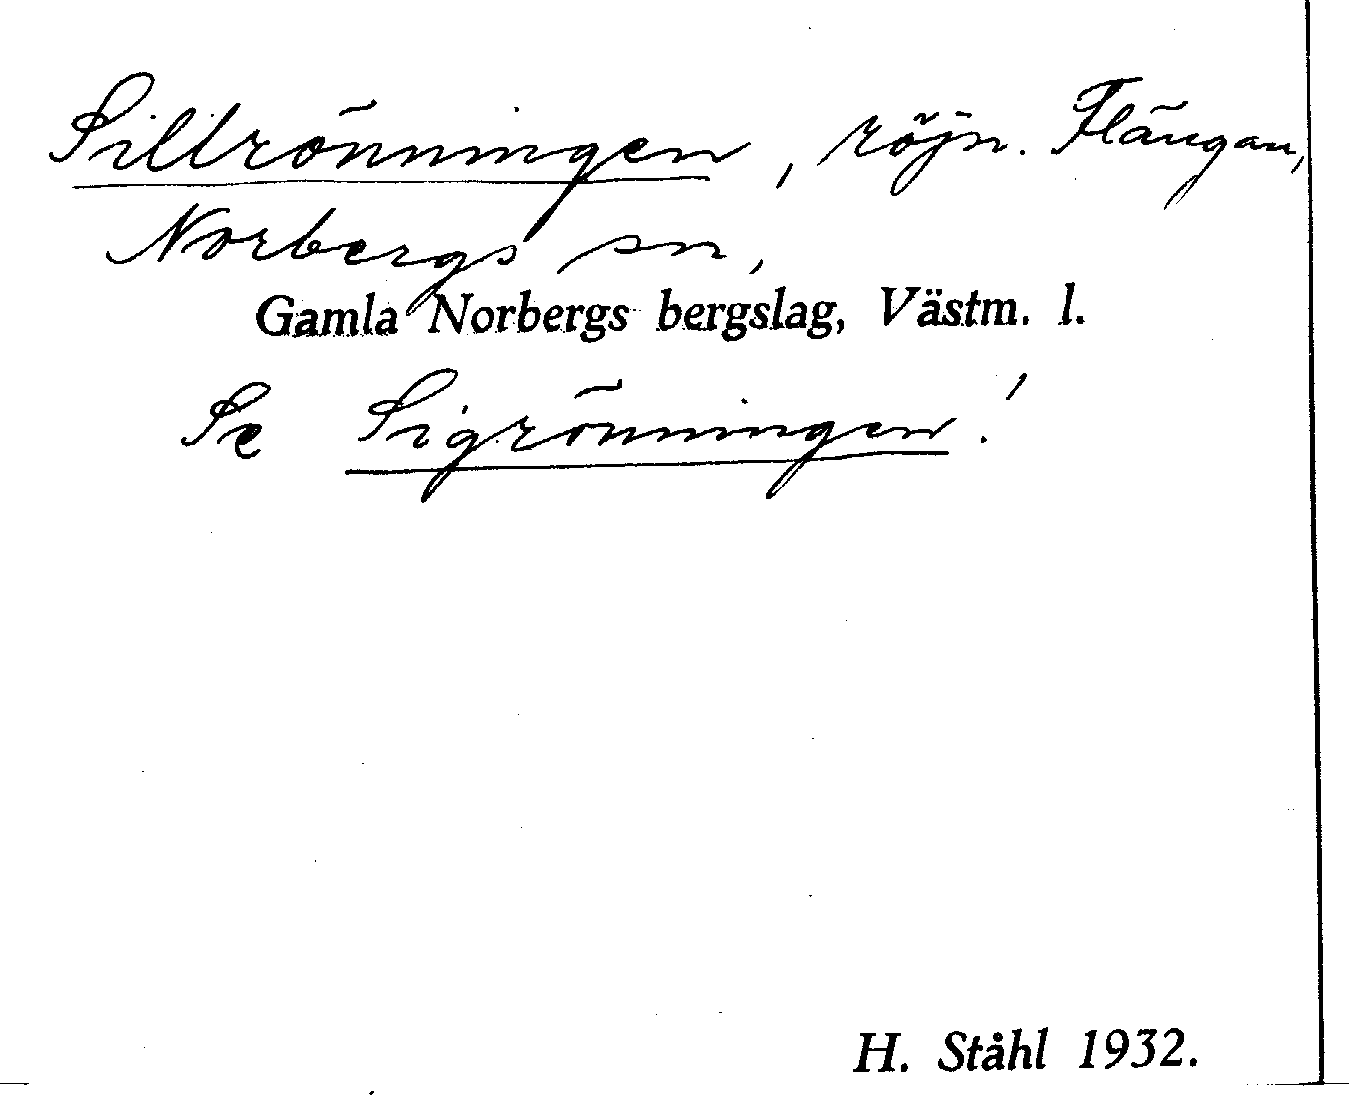 Sillrönningen, röjn. Flängan,
Norbergs sn,
Gamla Norbergs bergslag, Västm. l.
Se Sigrönningen!
H. Ståhl 1932.